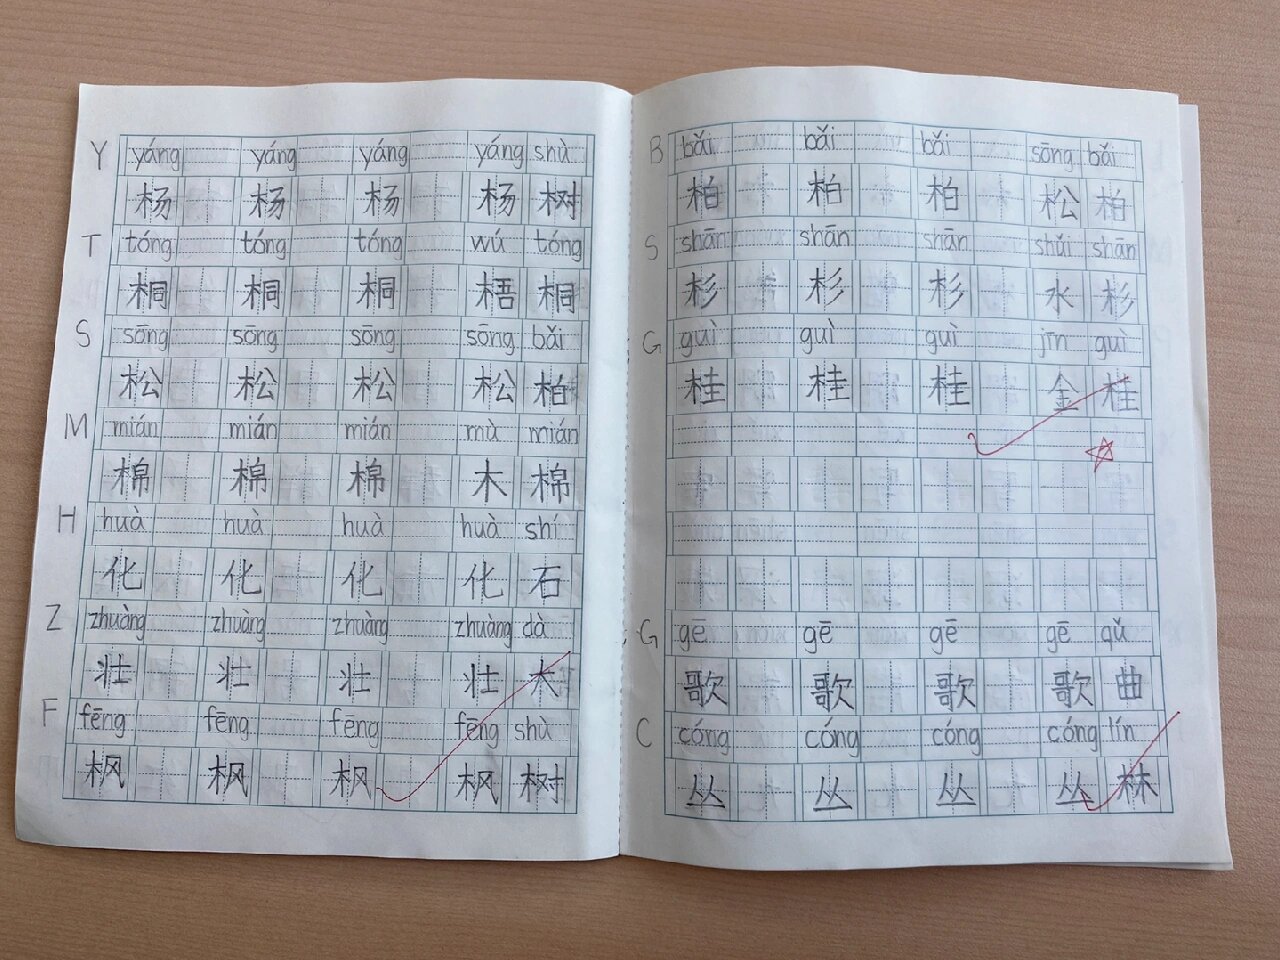 Y yáng yáng yáng yáng shù
杨 杨 杨 杨 树
T tóng tóng tóng wú tóng
桐 桐 桐 梧 桐
S sōng sōng sōng sōng bǎi
松 松 松 松 柏
M mián mián mián mù mián
棉 棉 棉 木 棉
H huà huà huà huà shí
化 化 化 化 石
Z zhuàng zhuàng zhuàng zhuàng dà
壮 壮 壮 壮 大
F fēng fēng fēng fēng shù
枫 枫 枫 枫 树
B bǎi bǎi bǎi sōng bǎi
柏 柏 柏 松 柏
S shān shān shān shuǐ shān
杉 杉 杉 水 杉
G guì guì guì jīn guì
桂 桂 桂 金 桂
G gē gē gē gē qǔ
歌 歌 歌 歌 曲
C cóng cóng cóng cóng lín
丛 丛 丛 丛 林